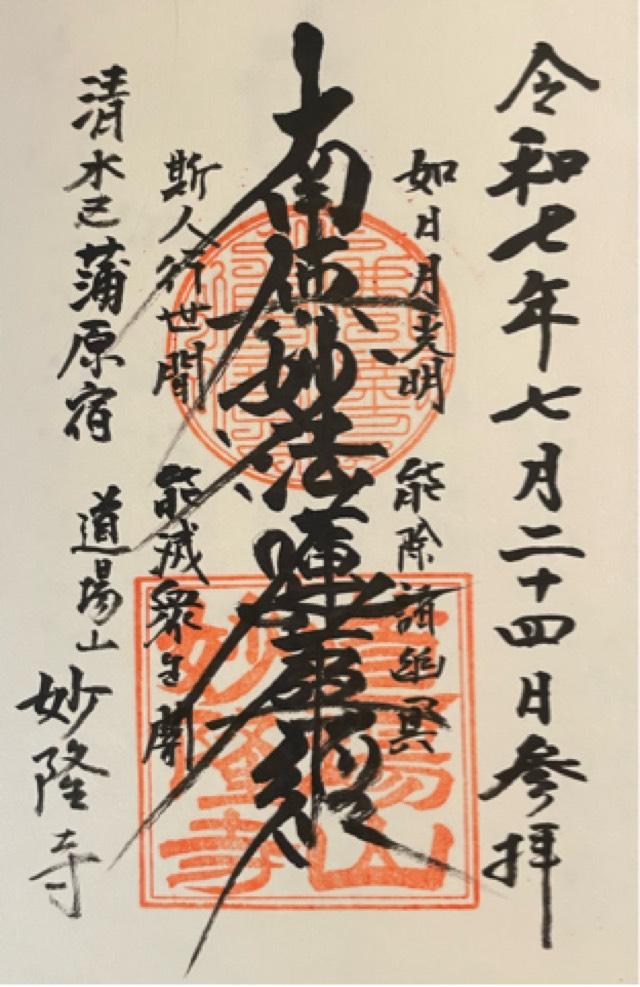 令和七年七月二十四日参拝
如日月光明 能除諸幽冥
南無妙法蓮華経
斯人行世間 能滅衆生闇
清水区蒲原宿 道場山 妙隆寺
道場山
妙隆寺